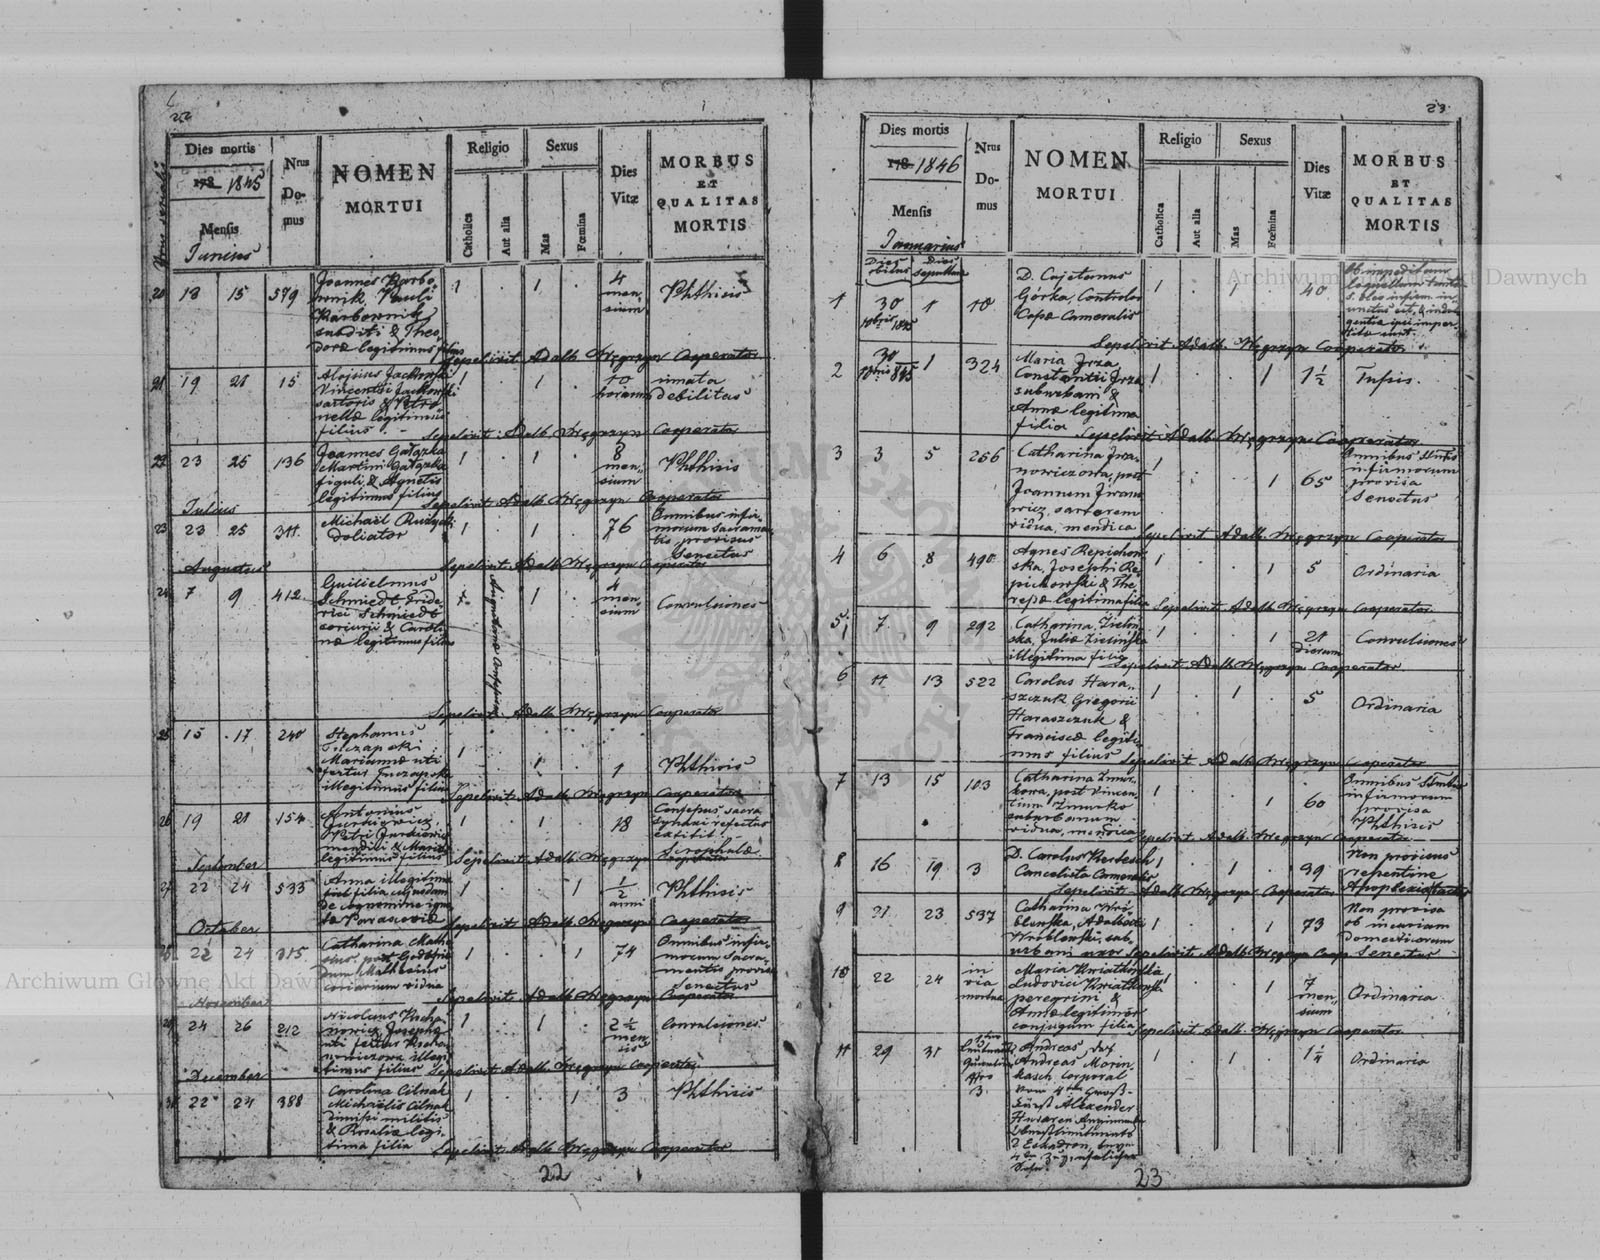 22
Nrus serialis
Dies mortis
178 1845
Mensis
Junius
Nrus
Do-
mus
NOMEN
MORTUI
Religio
Catholica
Aut alia
Sexus
Mas
Fœmina
Dies
Vitæ
MORBUS
ET
QUALITAS
MORTIS
20 13 15 579
Joannes Karbo
wnik, Pauli
Karbownik
subditi & Theo
doræ legitimus filius
1 . 1 .
4
men-
sium
Phthisis
Sepelivit Adalb. Węgrzyn Cooperator
21 19 21 15
Aloisius Jackowski
Vincentii Jackowski
sartoris & Petro
nellæ legitimus
filius
1 . 1 .
10
horarum
innata
debilitas
Sepelivit Adalb. Węgrzyn Cooperator
22 23 25 136
Joannes Gałązka
Martini Gałązka
figuli & Agnetis
legitimus filius
1 . 1 .
8
men-
sium
Phthisis
Sepelivit Adalb. Węgrzyn Cooperator
Julius
23 23 25 311
Michael Rużycki
doliator
1 . 1 .
76
Omnibus infir-
morum Sacramen-
tis provisus
Senectus
Sepelivit Adalb. Węgrzyn Cooperator
Augustus
24 7 9 412
Guilielmus
Schmiedt, Fride
rici Schmiedt
coriarii & Caroli
næ legitimus filius
1 .
4
men-
sium
Convulsiones
Sepelivit Adalb. Węgrzyn Cooperator
25 15 17 240
Stephanus
Tuczapski
Mariannæ uti
fertur Tuczapska
illegitimus filius
1 . 1 .
1
Phthisis
Sepelivit Adalb. Węgrzyn Cooperator
26 19 21 154
Antonius
Jurkiewicz,
Petri Jurkiewicz
mendici & Mariæ
legitimus filius
1 . 1 .
18
Confessus sacra
Synaxi refectus
extitit
Scrophulæ
Sepelivit Adalb. Węgrzyn Cooperator
September
27 22 24 533
Anna illegitima
filia cujusdam
de cognomine igno
tæ Parasceviæ
1 . . 1
1/2
anni
Phthisis
Sepelivit Adalb. Węgrzyn Cooperator
October
28 22 24 315
Catharina
post Godefri
dum Mathesius
coriarium vidua
1 . . 1
74
Omnibus infir-
morum Sacra-
mentis provisa
Senectus
Sepelivit Adalb. Węgrzyn Cooperator
November
29 24 26 212
Nicolaus Kocha
nowicz, Josephæ
uti fertur Kocha
nowiczowa illegi
timus filius
1 . 1 .
2 1/2
men
sis
Convulsiones
Sepelivit Adalb. Węgrzyn Cooperator
December
30 22 24 388
Carolina Cilnak
Michaelis Cilnak
dimissi militis
& Rosaliæ legi-
tima filia
1 . . 1
3
Phthisis
Sepelivit Adalb. Węgrzyn Cooperator
22
23
Dies mortis
178 1846
Mensis
Januarius
Dies obitus
Dies sepulturæ
Nrus
Do-
mus
NOMEN
MORTUI
Religio
Catholica
Aut alia
Sexus
Mas
Fœmina
Dies
Vitæ
MORBUS
ET
QUALITAS
MORTIS
1 30 1 10
10bris 1845
D. Cajetanus
Górka, Controlor
Capæ Cameralis
1 . 1 .
40
Ob impeditam
loquellam tantum
s. oleo infirm. in
unctus est, & indul
gentiæ ipsi imper
titæ sunt.
Sepelivit Adalb. Węgrzyn Cooperator
2 30 1 324
10bris 845
Maria Jrza
Constantii Jrza
suburbani &
Annæ legitima
filia
1 . . 1
1 1/2
Tussis.
Sepelivit Adalb. Węgrzyn Cooperator
3 3 5 256
Catharina Jwa-
nowiczowa, post
Joannem Jwano
wicz sartorem
vidua, mendica
1 . . 1
65
Omnibus Stis
infirmorum
provisa
Senectus
Sepelivit Adalb. Węgrzyn Cooperator
4 6 8 490
Agnes Repichow
ska, Josephi Re
pichowski & The
resæ legitima filia
1 . . 1
5
Ordinaria
Sepelivit Adalb. Węgrzyn Cooperator
5 7 9 292
Catharina Zieliń
ska, Juliæ Zielińska
illegitima filia
1 . . 1
21
dierum
Convulsiones
Sepelivit Adalb. Węgrzyn Cooperator
6 11 13 522
Carolus Hara-
szczuk Gregorii
Haraszczuk &
Franciscæ legiti-
mus filius
1 . 1 .
5
Ordinaria
Sepelivit Adalb. Węgrzyn Cooperator
7 13 15 103
Catharina Zmur
kowa, post Vincen
tium Zmurko
suburbanum
vidua, mendica
1 . . 1
60
Omnibus Stis
infirmorum
provisa
Phthisis
Sepelivit Adalb. Węgrzyn Cooperator
8 16 19 3
D. Carolus Kertesch
Cancelista Cameralis
1 . 1 .
39
Non provisus
repentine
Apoplexia tactus
Sepelivit Adalb. Węgrzyn Cooperator
9 21 23 537
Catharina Wró
blewska, Adalberti
Wróblewski, sub
urbani uxor
1 . . 1
73
Non provisa
ob incuriam
domesticorum
Senectus
Sepelivit Adalb. Węgrzyn Coop.
10 22 24
in
via
mortua
Maria Kwiatkowska
Ludovici Kwiatkowski
peregrini &
Annæ legitimor
conjugum filia
1 . . 1
7
men-
sium
Ordinaria
Sepelivit Adalb. Węgrzyn Cooperator
11 29 31
Nro
3
Andreas des
Andreas Morin
kasch Corporal
vom 4ten Groß-
fürst Alexander
Husaren Regiments
1 . 1 .
1 1/4
Ordinaria
23
Archiwum Główne Akt Dawnych
Archiwum Główne Akt Dawnych